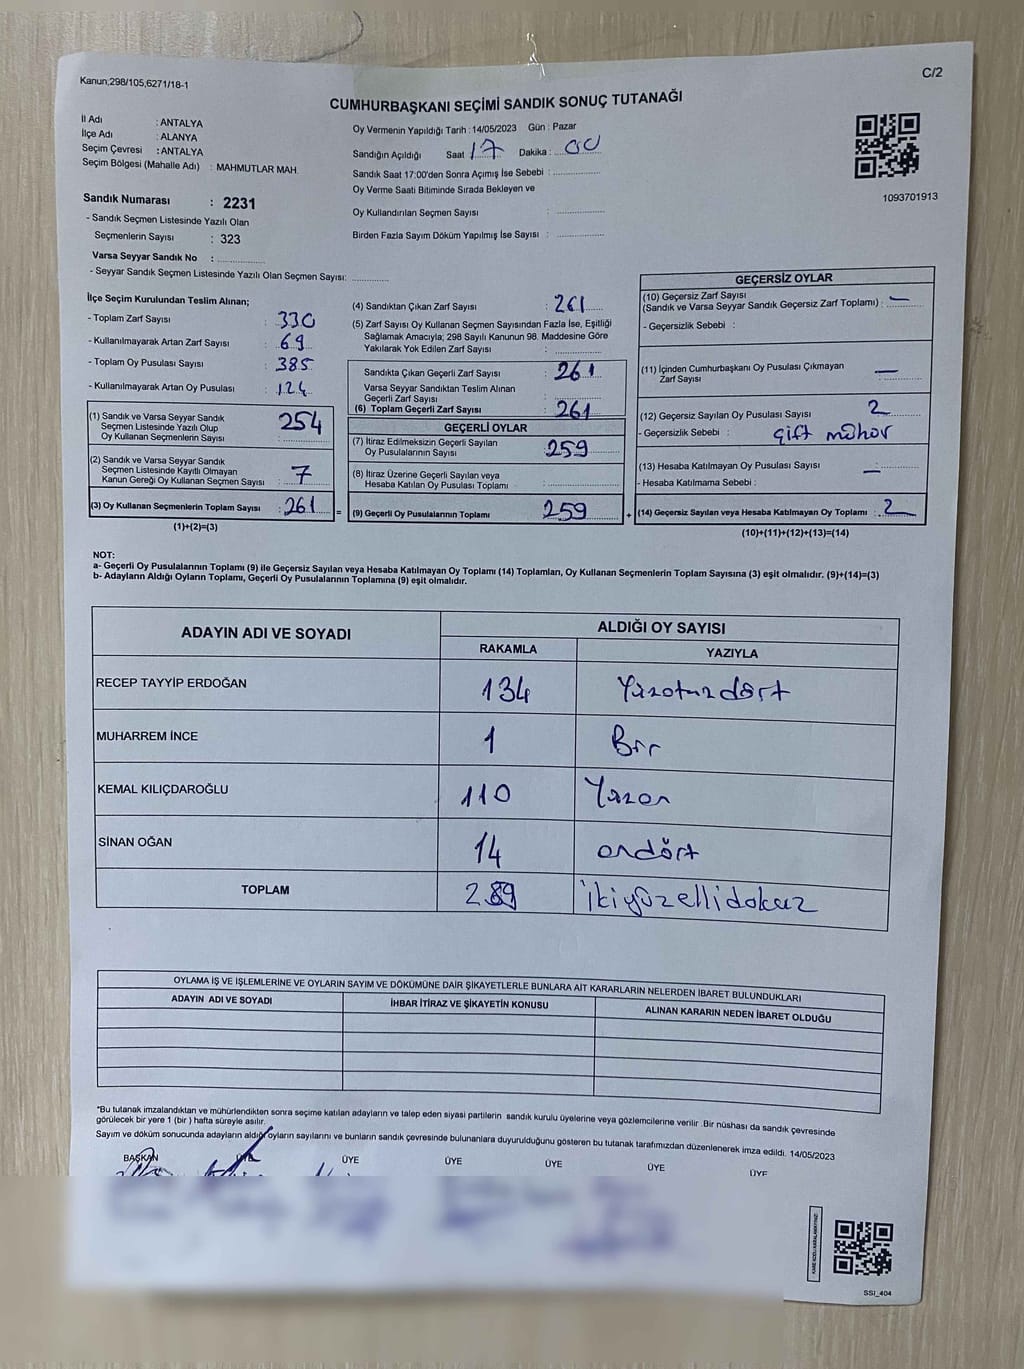 Kanun,298/105,6271/18-1
C/2
CUMHURBAŞKANI SEÇİMİ SANDIK SONUÇ TUTANAĞI
İl Adı : ANTALYA
İlçe Adı : ALANYA
Seçim Çevresi : ANTALYA
Seçim Bölgesi (Mahalle Adı) : MAHMUTLAR MAH.
Sandık Numarası : 2231
- Sandık Seçmen Listesinde Yazılı Olan
Seçmenlerin Sayısı : 323
Varsa Seyyar Sandık No :
- Seyyar Sandık Seçmen Listesinde Yazılı Olan Seçmen Sayısı:
Oy Vermenin Yapıldığı Tarih : 14/05/2023 Gün : Pazar
Sandığın Açıldığı Saat 17 Dakika : 00
Sandık Saat 17:00'den Sonra Açımış İse Sebebi :
Oy Verme Saati Bitiminde Sırada Bekleyen ve
Oy Kullandırılan Seçmen Sayısı :
Birden Fazla Sayım Döküm Yapılmış İse Sayısı :
1093701913
İlçe Seçim Kurulundan Teslim Alınan;
- Toplam Zarf Sayısı : 330
- Kullanılmayarak Artan Zarf Sayısı : 69
- Toplam Oy Pusulası Sayısı : 385
- Kullanılmayarak Artan Oy Pusulası : 124
(1) Sandık ve Varsa Seyyar Sandık
Seçmen Listesinde Yazılı Olup
Oy Kullanan Seçmenlerin Sayısı : 254
(2) Sandık ve Varsa Seyyar Sandık
Seçmen Listesinde Kayıtlı Olmayan
Kanun Gereği Oy Kullanan Seçmen Sayısı : 7
(3) Oy Kullanan Seçmenlerin Toplam Sayısı : 261
(1)+(2)=(3)
(4) Sandıktan Çıkan Zarf Sayısı : 261
(5) Zarf Sayısı Oy Kullanan Seçmen Sayısından Fazla İse, Eşitliği
Sağlamak Amacıyla; 298 Sayılı Kanunun 98. Maddesine Göre
Yakılarak Yok Edilen Zarf Sayısı :
Sandıkta Çıkan Geçerli Zarf Sayısı : 261
Varsa Seyyar Sandıktan Teslim Alınan
Geçerli Zarf Sayısı :
(6) Toplam Geçerli Zarf Sayısı : 261
GEÇERLİ OYLAR
(7) İtiraz Edilmeksizin Geçerli Sayılan
Oy Pusulalarının Sayısı : 259
(8) İtiraz Üzerine Geçerli Sayılan veya
Hesaba Katılan Oy Pusulası Toplamı :
= (9) Geçerli Oy Pusulalarının Toplamı : 259
GEÇERSİZ OYLAR
(10) Geçersiz Zarf Sayısı
(Sandık ve Varsa Seyyar Sandık Geçersiz Zarf Toplamı) : —
- Geçersizlik Sebebi :
(11) İçinden Cumhurbaşkanı Oy Pusulası Çıkmayan
Zarf Sayısı : —
(12) Geçersiz Sayılan Oy Pusulası Sayısı : 2
- Geçersizlik Sebebi : çift mühür
(13) Hesaba Katılmayan Oy Pusulası Sayısı : —
- Hesaba Katılmama Sebebi :
+ (14) Geçersiz Sayılan veya Hesaba Katılmayan Oy Toplamı : 2
(10)+(11)+(12)+(13)=(14)
NOT:
a- Geçerli Oy Pusulalarının Toplamı (9) ile Geçersiz Sayılan veya Hesaba Katılmayan Oy Toplamı (14) Toplamları, Oy Kullanan Seçmenlerin Toplam Sayısına (3) eşit olmalıdır. (9)+(14)=(3)
b- Adayların Aldığı Oyların Toplamı, Geçerli Oy Pusulalarının Toplamına (9) eşit olmalıdır.
ADAYIN ADI VE SOYADI
ALDIĞI OY SAYISI
RAKAMLA YAZIYLA
RECEP TAYYİP ERDOĞAN 134 Yüzotuzdört
MUHARREM İNCE 1 Bir
KEMAL KILIÇDAROĞLU 110 Yüzon
SİNAN OĞAN 14 ondört
TOPLAM 259 ikiyüzellidokuz
OYLAMA İŞ VE İŞLEMLERİNE VE OYLARIN SAYIM VE DÖKÜMÜNE DAİR ŞİKAYETLERLE BUNLARA AİT KARARLARIN NELERDEN İBARET BULUNDUKLARI
ADAYIN ADI VE SOYADI İHBAR İTİRAZ VE ŞİKAYETİN KONUSU ALINAN KARARIN NEDEN İBARET OLDUĞU
*Bu tutanak imzalandıktan ve mühürlendikten sonra seçime katılan adayların ve talep eden siyasi partilerin sandık kurulu üyelerine veya gözlemcilerine verilir .Bir nüshası da sandık çevresinde
görülecek bir yere 1 (bir ) hafta süreyle asılır.
Sayım ve döküm sonucunda adayların aldığı oyların sayılarını ve bunların sandık çevresinde bulunanlara duyurulduğunu gösteren bu tutanak tarafımızdan düzenlenerek imza edildi. 14/05/2023
BAŞKAN ÜYE ÜYE ÜYE ÜYE ÜYE ÜYE
SSI_404